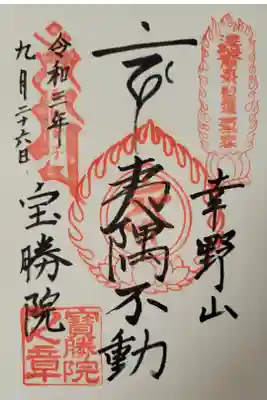 幸野山
夷隅不動
令和三年
九月二十六日
宝勝院
寳勝院
之章